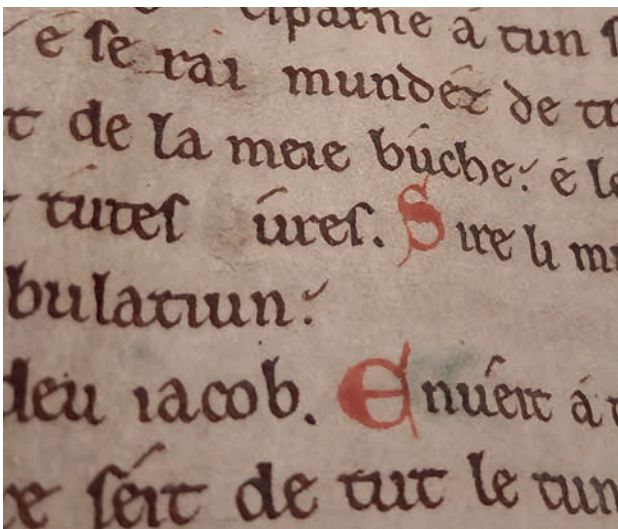 ciparne á tun
é se rai mundét de
de la meie búche: é le
tutes úres. Sire li
bulatiun:
deu iacob. Enuéit á
séit de tut le tun